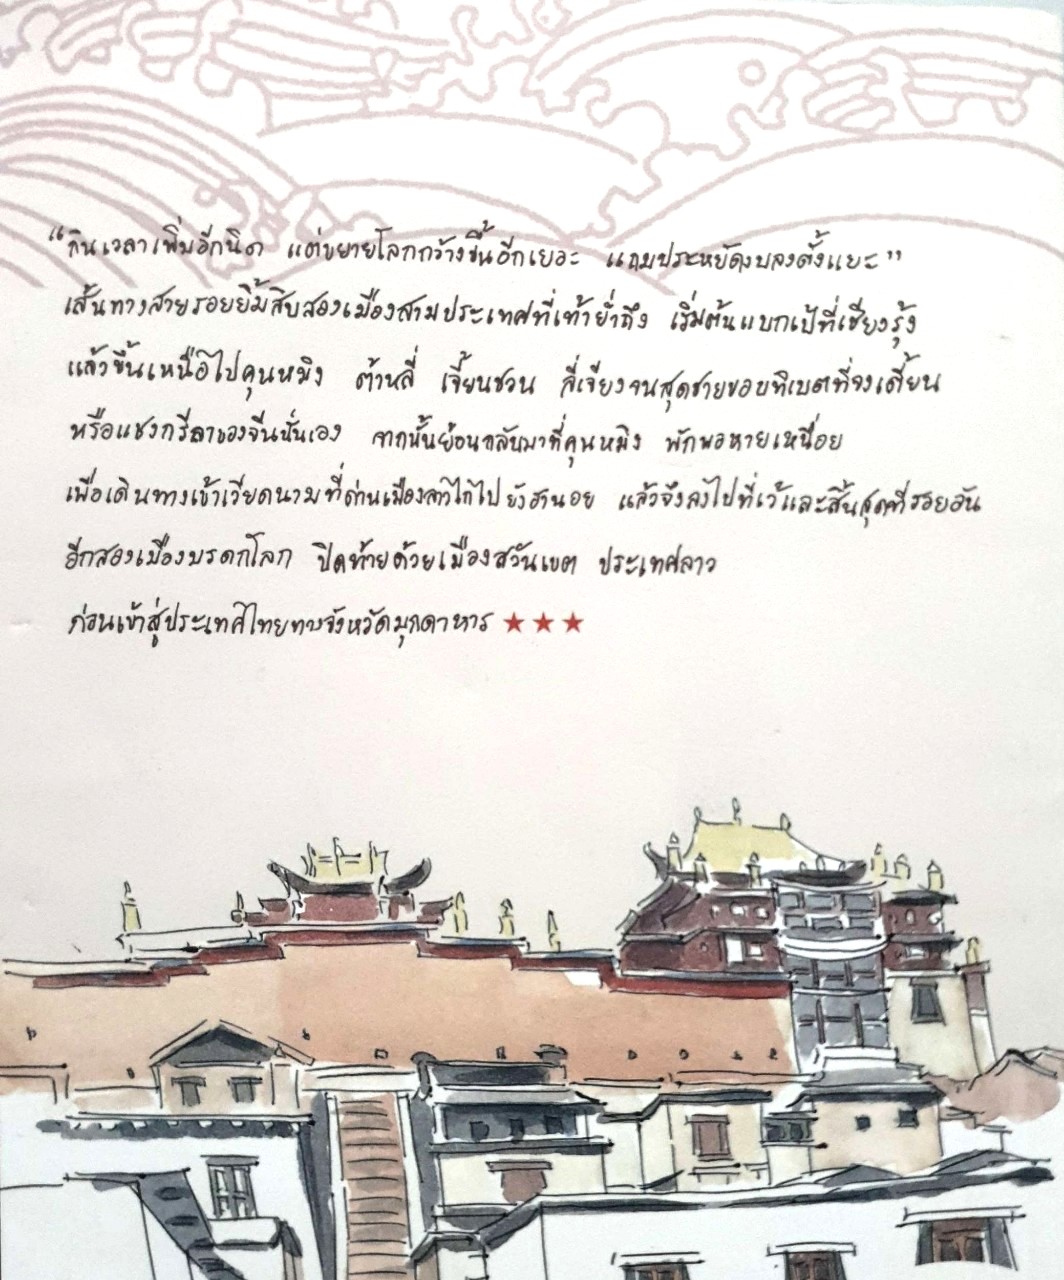 “กินเวลาเพิ่มอีกนิด แต่ขยายโลกกว้างขึ้นอีกเยอะ แถมประหยัดงบลงตั้งแยะ”
เส้นทางสายรอยยิ้มสิบสองเมืองสามประเทศที่เท้าย่ำถึง เริ่มต้นแบกเป้ที่เชียงรุ้ง
แล้วขึ้นเหนือไปคุนหมิง ต้าหลี่ เจี้ยนชวน ลี่เจียงจนสุดชายขอบทิเบตที่จงเตี้ยน
หรือแชงกรีลาของจีนนั่นเอง จากนั้นย้อนกลับมาที่คุนหมิง พักพอหายเหนื่อย
เพื่อเดินทางเข้าเวียดนามที่ด่านเมืองลาวไกไปยังฮานอย แล้วจึงลงไปที่เว้และสิ้นสุดที่ฮอยอัน
อีกสองเมืองมรดกโลก ปิดท้ายด้วยเมืองสวันเขต ประเทศลาว
ก่อนเข้าสู่ประเทศไทยทางจังหวัดมุกดาหาร ★★★